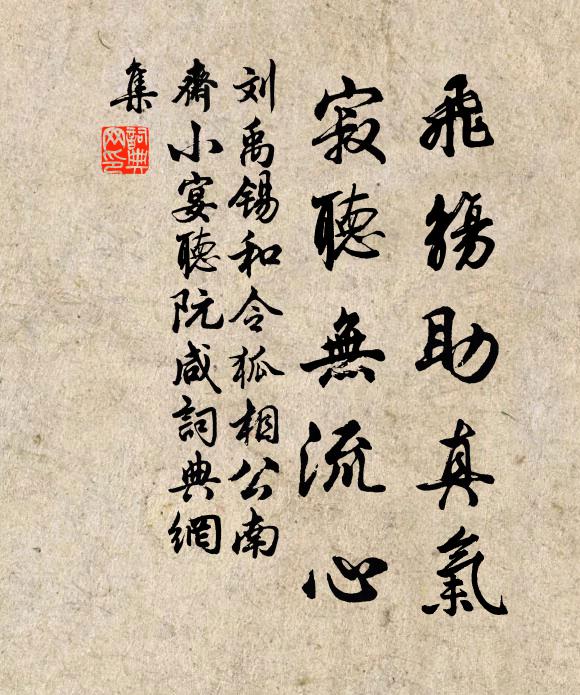 飛觴助真氣
寂聽無流心
刘禹锡和令狐相公南
齋小宴聽阮咸詞典網
集
詞典網印